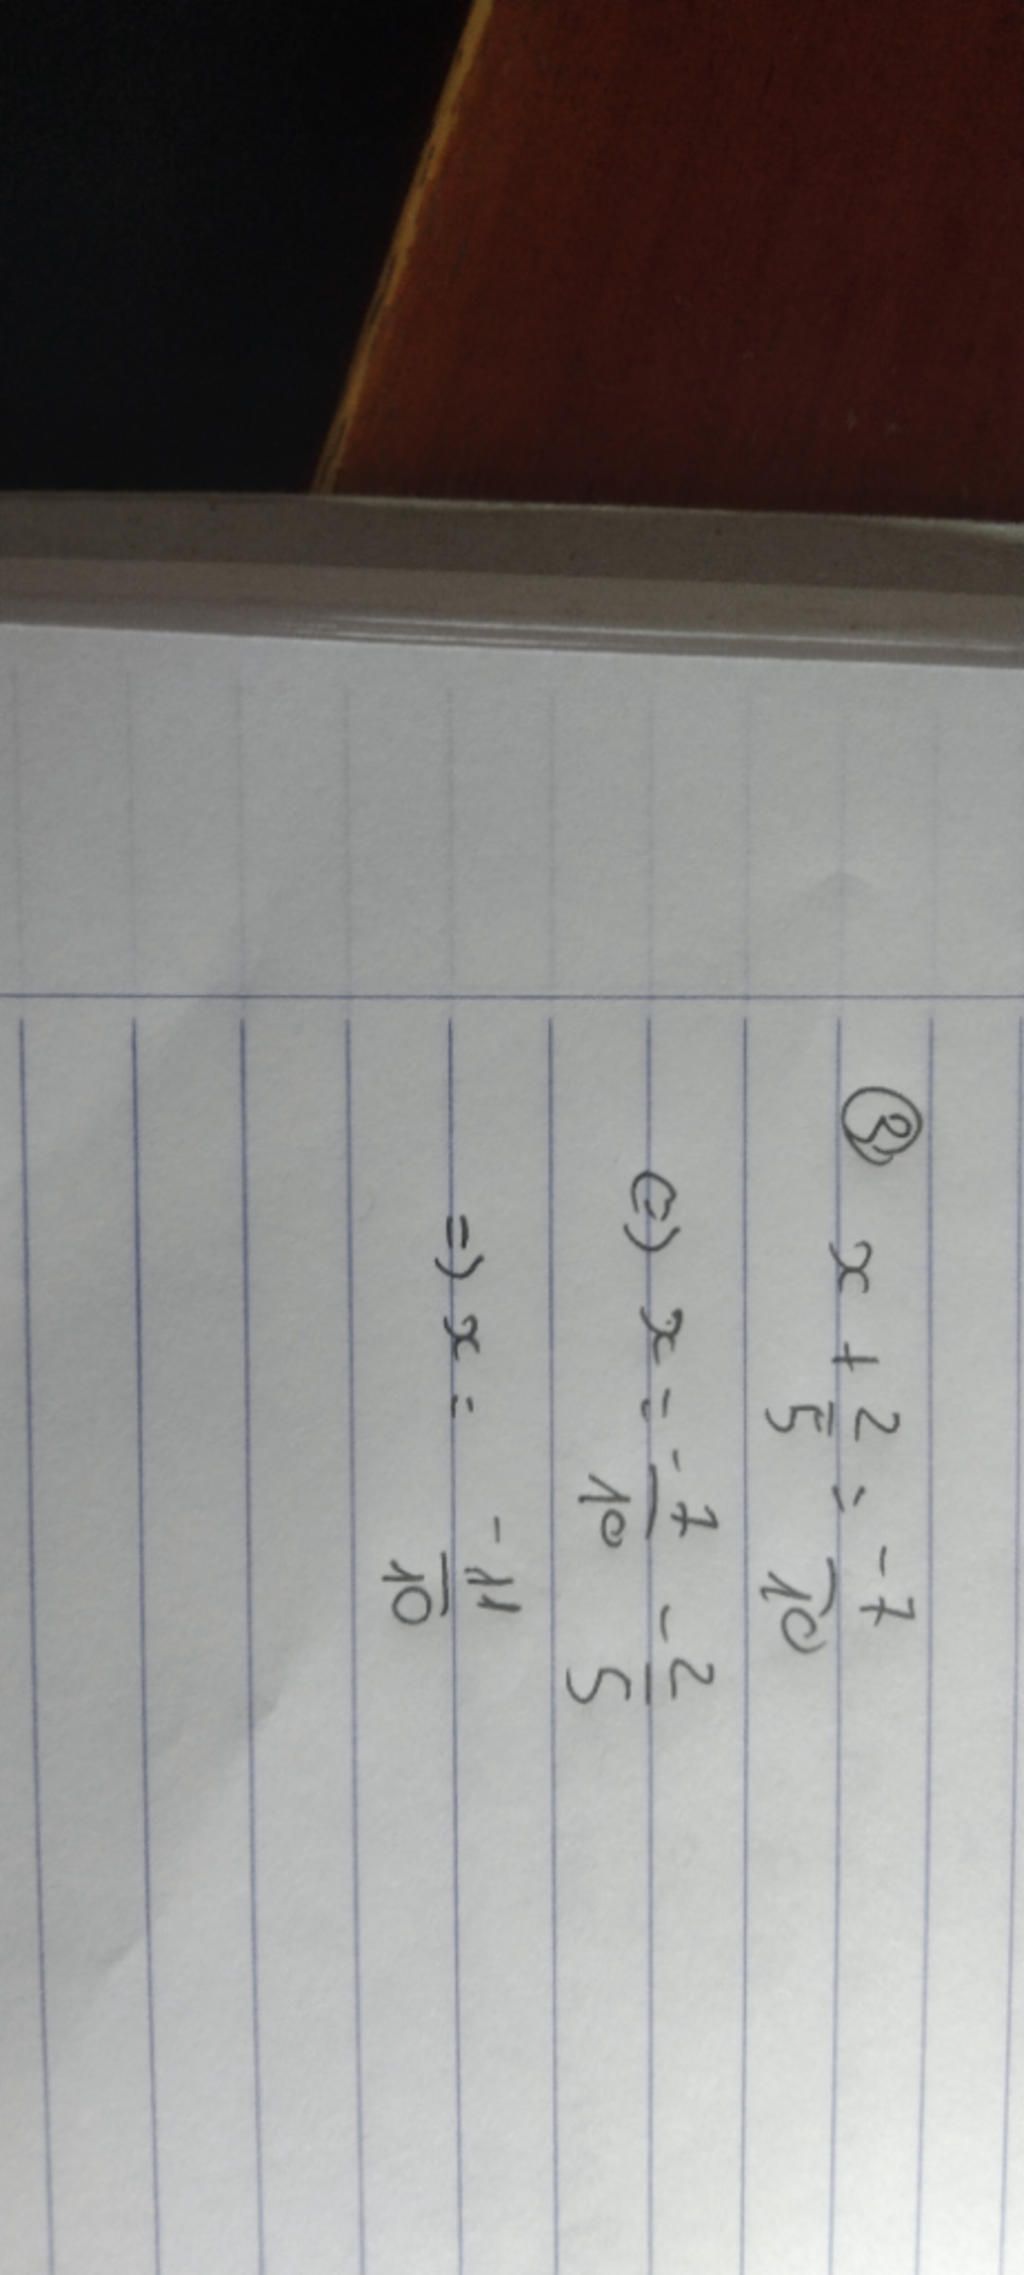 ③ x + 2/5 = -7/10
(=) x = -7/10 - 2/5
=) x = -11/10